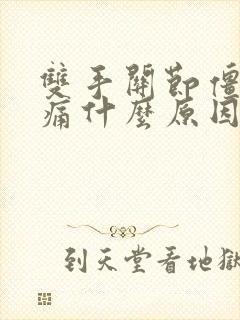 雙手關節僵
痛什麼原因
到天堂看地獄